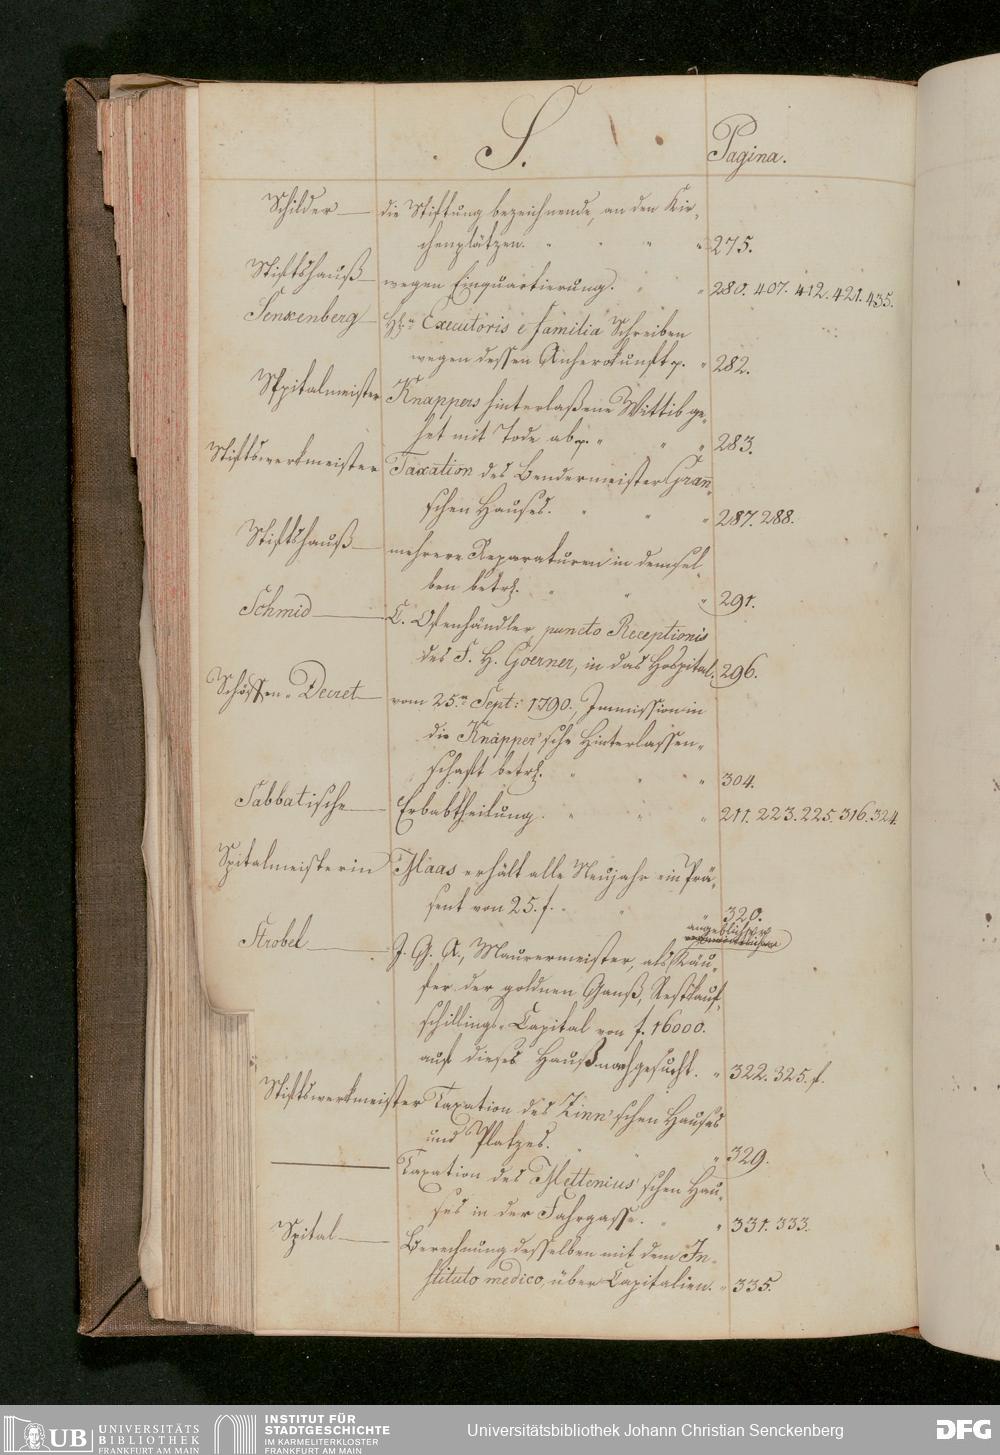 S.
Pagina.
Schilder — die Stiftung bezeichnende, an den Kir-
chenplätzen. 275.
Stiftshauß — wegen Einquartierung. 280. 407. 412. 421. 435.
Senkenberg — Hn. Executoris e familia Schreiben
wegen dessen Anherokunft p. 282.
Spitalmeister Knappers hinterlaßene Wittib ge-
het mit Tode ab p. 283.
Stiftswerkmeister Taxation des Bendermeister Gran-
schen Hauses. 287. 288.
Stiftshauß — mehrere Reparaturen in demsel-
ben betrf. 291.
Schmid — C. Ofenhändler, puncto Receptionis
des F. H. Goerner, in das Hospital. 296.
Schöffen-Decret — vom 25.n Sept: 1790., Immission in
die Knapper'sche Hinterlassen-
schaft betrf. 304.
Sabbatische — Erbabtheilung. 211. 223. 225. 316. 324.
Spitalmeisterin Maas erhält alle Neujahr ein Prä-
sent von 25. f. 320.
angeblicher
Strobel — J. G. A., Maurermeister, als Käu-
fer der goldnen Ganß, Restkauf-
schillings-Capital von f. 16000.
auf dieses Hauß nachgesucht. 322. 325. f.
Stiftswerkmeister Taxation des Zinn'schen Hauses
und Platzes. 329.
— Taxation des Mettenius'schen Hau-
ses in der Fahrgasse. 331. 333.
Spital — Berechnung desselben mit dem In-
stituto medico, über Capitalien. 335.
UB UNIVERSITÄTS
BIBLIOTHEK
FRANKFURT AM MAIN
INSTITUT FÜR
STADTGESCHICHTE
IM KARMELITERKLOSTER
FRANKFURT AM MAIN
Universitätsbibliothek Johann Christian Senckenberg
DFG